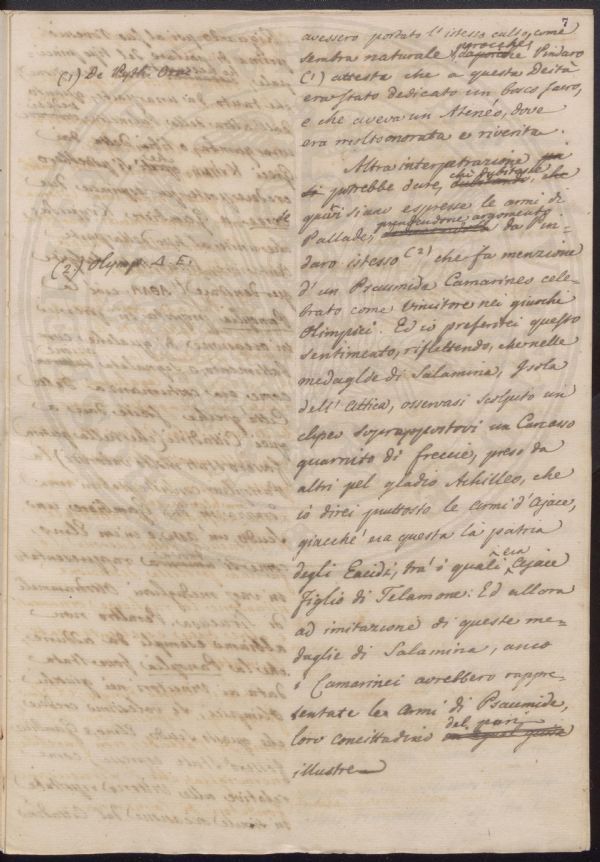 7
avessero portato l'istesso culto, come
sembra naturale, perocché Pindaro
(1) De Pyth. Ora:
(1) attesta che a questa Deità
era stato dedicato un bosco sacro,
e che aveva un Ateneo, dove
era molto onorata e riverita.
Altra interpetrazione
si potrebbe dare, che dubitasse
quivi siano espresse le armi di
Pallade, prendendone argomento da Pin-
(2) Olymp. Δ. E.
daro istesso (2) che fa menzione
d'un Psaumida Camarineo cele-
brato come vincitore nei giuochi
Olimpici. Ed io preferirei questo
sentimento, riflettendo, che nelle
medaglie di Salamina, Isola
dell'Attica, osservasi scolpito un
clipeo soprappostovi un Carcasso
guarnito di freccie, preso da
altri pel gladio Achilleo, che
io direi piuttosto le armi d'Ajace,
giacché era questa la patria
degli Eacidi, tra' i quali era Ajace
figlio di Telamone: Ed allora
ad imitazione di queste me-
daglie di Salamina, anco
i Camarinei avrebbero rappre-
sentate le armi di Psaumide,
loro concittadino del pari
illustre